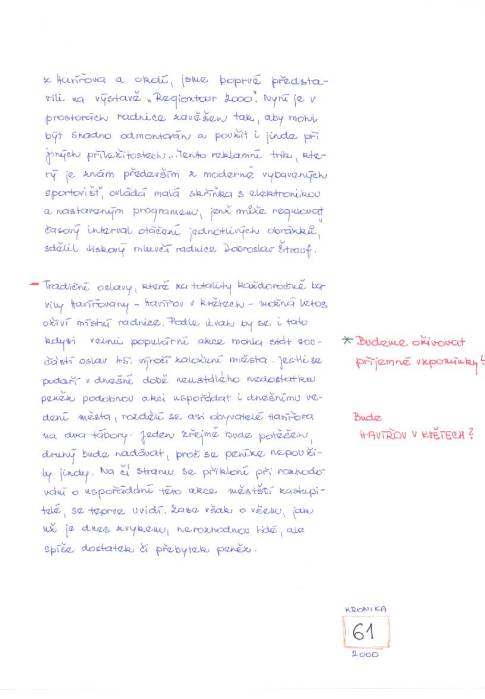 z Havířova a okolí, jsme poprvé předsta-
vili na výstavě „Regiontour 2000". Nyní je v
prostorách radnice zavěšen tak, aby mohl
být snadno odmontován a použit i jinde při
jiných příležitostech... Tento reklamní trik, kte-
rý je znám především z moderně vybavených
sportovišť, ovládá malá skříňka s elektronikou
a nastaveným programem, jenž může regulovat
časový interval otáčení jednotlivých obrázků,"
sdělil tiskový mluvčí radnice Dobroslav
– Tradiční oslavy, které za totality každoročně ba-
vily Havířovany – Havířov v květech – možná letos
oživí místní radnice. Podle úvah by se i tato
kdysi velmi populární akce mohla stát sou-
částí oslav 45. výročí založení města. Jestli se
podaří v dnešní době neustálého nedostatku
peněz podobnou akci uspořádat i dnešnímu ve-
dení města, rozdělí se asi obyvatelé Havířova
na dva tábory. Jeden zřejmě bude potěšen,
druhý bude nadávat, proč se peníze nepouži-
ly jindy. Na čí stranu se přikloní při rozhodo-
vání o uspořádání této akce městští zastupi-
telé, se teprve uvidí. Zase však o všem, jak
už je dnes zvykem, nerozhodnou lidé, ale
spíše dostatek či přebytek peněz.
* Budeme oživovat
příjemné vzpomínky!
Bude
HAVÍŘOV V KVĚTECH?
KRONIKA
61
2000